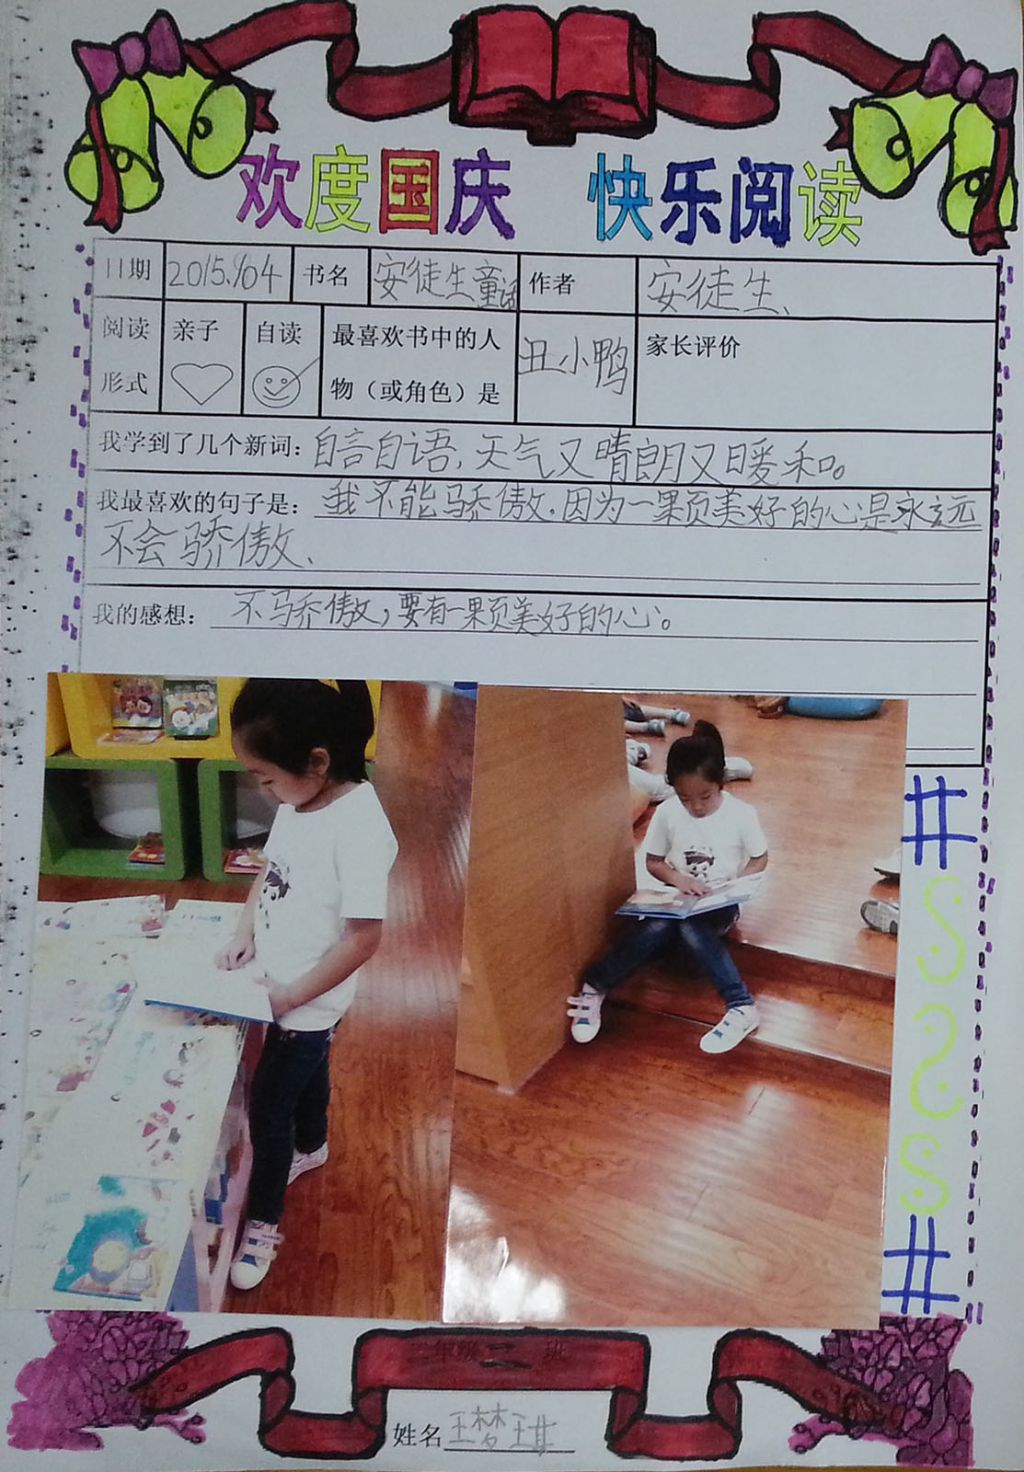 欢度国庆 快乐阅读
日期 2015.1/04 书名 安徒生童话 作者 安徒生、
阅读形式 亲子 自读 最喜欢书中的人物（或角色）是 丑小鸭 家长评价
我学到了几个新词：自言自语，天气又晴朗又暖和。
我最喜欢的句子是：我不能骄傲．因为一颗美好的心是永远
不会骄傲、
我的感想：不骄傲，要有一颗美好的心。
年级二班
姓名 王梦琪